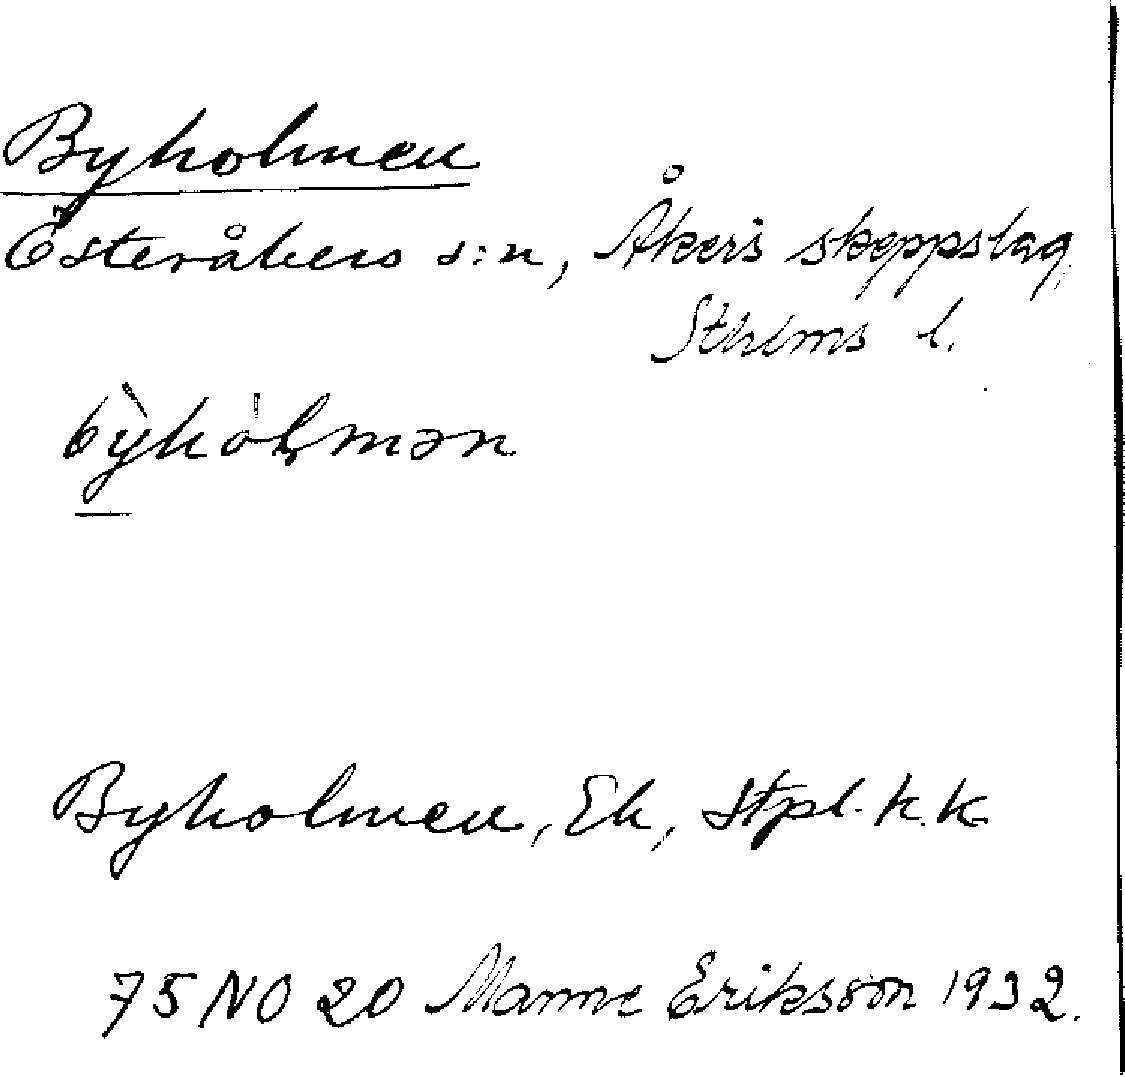 Byholmen
Österåkers s:n, Åkers skeppslag,
Sthlms l.
by̍holmən
Byholmen, Ek, Stpl. k.k
75 NO 20 Manne Eriksson 1932.